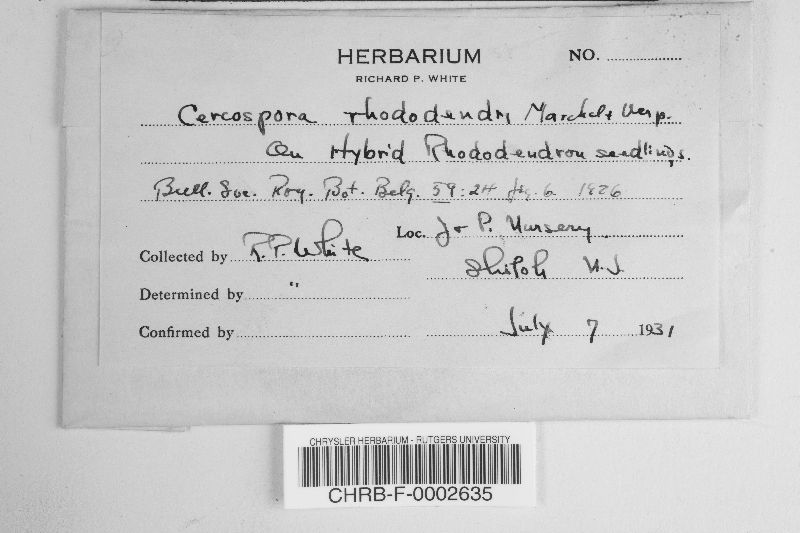 HERBARIUM
NO.
RICHARD P. WHITE
Cercospora rhododendri Marchal + Verp.
On Hybrid Rhododendron seedlings.
Bull. Soc. Roy. Bot. Belg. 59: 24 fig. 6 1926
Loc. J + P. Nursery
Collected by R.P. White
Shiloh N.J.
Determined by "
Confirmed by
July 7 1931
CHRYSLER HERBARIUM - RUTGERS UNIVERSITY
CHRB-F-0002635